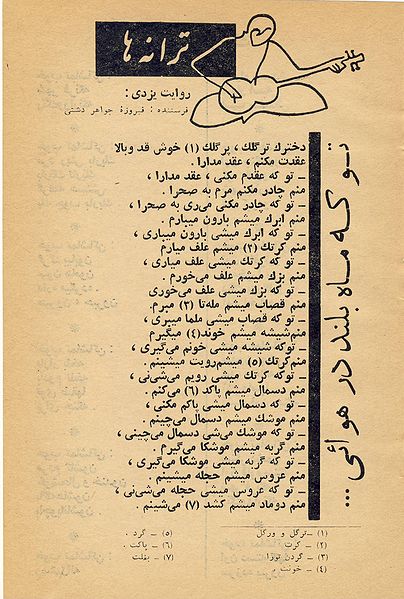 ترانه ها
روایت یزدی :
فرستنده : فیروزهٔ جواهر دشتی
تو که ماه بلند در هوائی ...
دخترك ترگلك ، پرگلك (۱) خوش قد وبالا
عقدت مکنم ، عقد مدارا .
ـ تو که عقدم مکنی ، عقد مدارا ،
منم چادر مکنم مرم به صحرا .
ـ تو که چادر مکنی می‌ری به صحرا ،
منم ابرك میشم بارون میبارم .
ـ تو که ابرك میشی بارون میباری ،
منم کرتك (۲) میشم علف میارم
ـ تو که کرتك میشی علف میاری ،
منم بزك میشم علف می‌خورم .
ـ تو که بزك میشی علف می‌خوری
منم قصاب میشم مله‌تا (۳) میرم.
ـ تو که قصاب میشی ملما میبری ،
منم‌شیشه میشم خوند(٤) میگیرم
ـ توکه شیشه میشی خونم می‌گیری ،
منم‌گرتك (۵) میشم‌رویت میشینم .
ـ تو که گرتك میشی رویم می‌شی‌نی ،
منم دسمال میشم پاکد (۶) می‌کنم .
ـ تو که دسمال میشی پاکم مکنی ،
منم موشك میشم دسمال می‌چینم .
ـ تو که موشك می‌شی دسمال می‌چینی ،
منم گربه میشم موشکا می‌گیرم .
ـ تو که گربه میشی موشکا می‌گیری ،
منم عروس میشم حجله میشینم .
ـ تو که عروس میشی حجله می‌شی‌نی ،
منم دوماد میشم کشد (۷) می‌شینم .
(۱) ـ ترگل و ورگل
(۲) ـ کرت
(۳) ـ گردن توراـ
(٤) ـ خونت ـ
(۵) ـ گرد .
(۶) ـ پاکت .
(۷) ـ بغلت